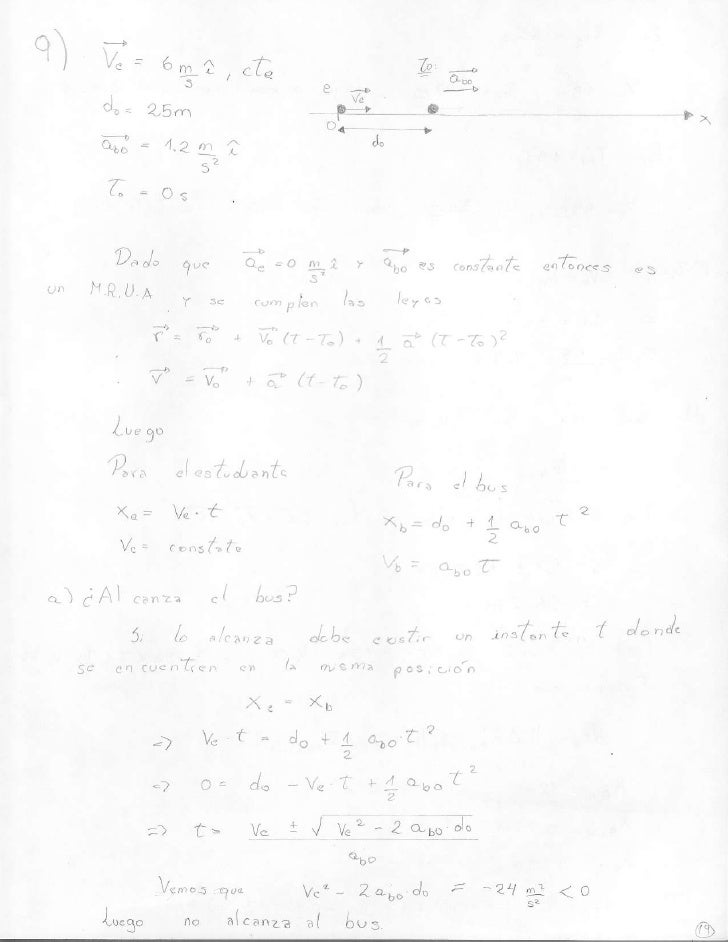 9) V⃗e = 6 m/s î, cte
d₀ = 25m
a⃗b0 = 1.2 m/s² î
T₀ = 0 s
T₀: a⃗b0
e V⃗e
0 d₀ x
Dado que a⃗e = 0 m/s² î y a⃗b0 es constante entonces es
un M.R.U.A y se cumplen las leyes
r⃗ = r⃗₀ + V⃗₀ (t - T₀) + 1/2 a⃗ (t - T₀)²
v⃗ = V⃗₀ + a⃗ (t - T₀)
Luego
Para el estudiante
Xe = Ve · t
Ve = constate
Para el bus
Xb = d₀ + 1/2 ab0 t²
Vb = ab0 t
a) ¿Alcanza el bus?
Si lo alcanza debe existir un instante t donde
se encuentren en la misma posición
Xe = Xb
=> Ve · t = d₀ + 1/2 ab0 · t²
=> 0 = d₀ - Ve · t + 1/2 ab0 t²
=> t = (Ve ± √(Ve² - 2 ab0 · d₀)) / ab0
Vemos que Ve² - 2 ab0 · d₀ = -24 m²/s² < 0
Luego no alcanza al bus.
14